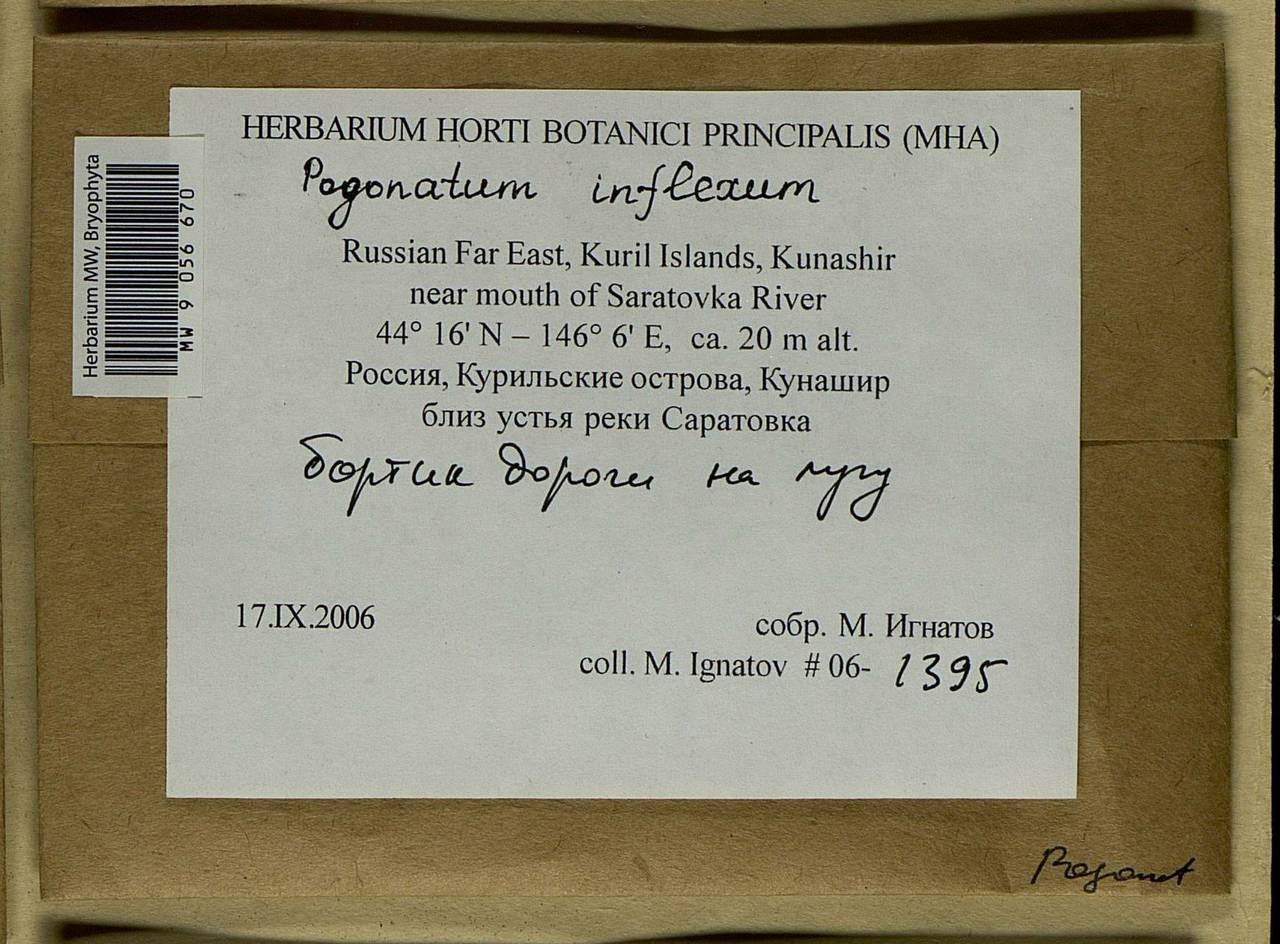 HERBARIUM HORTI BOTANICI PRINCIPALIS (MHA)
Pogonatum inflexum
Russian Far East, Kuril Islands, Kunashir
near mouth of Saratovka River
44° 16' N – 146° 6' E, ca. 20 m alt.
Россия, Курильские острова, Кунашир
близ устья реки Саратовка
бортик дороги на лугу
17.IX.2006
собр. М. Игнатов
coll. M. Ignatov # 06- 1395
Herbarium MW, Bryophyta
MW 9 056 670
Pogonat